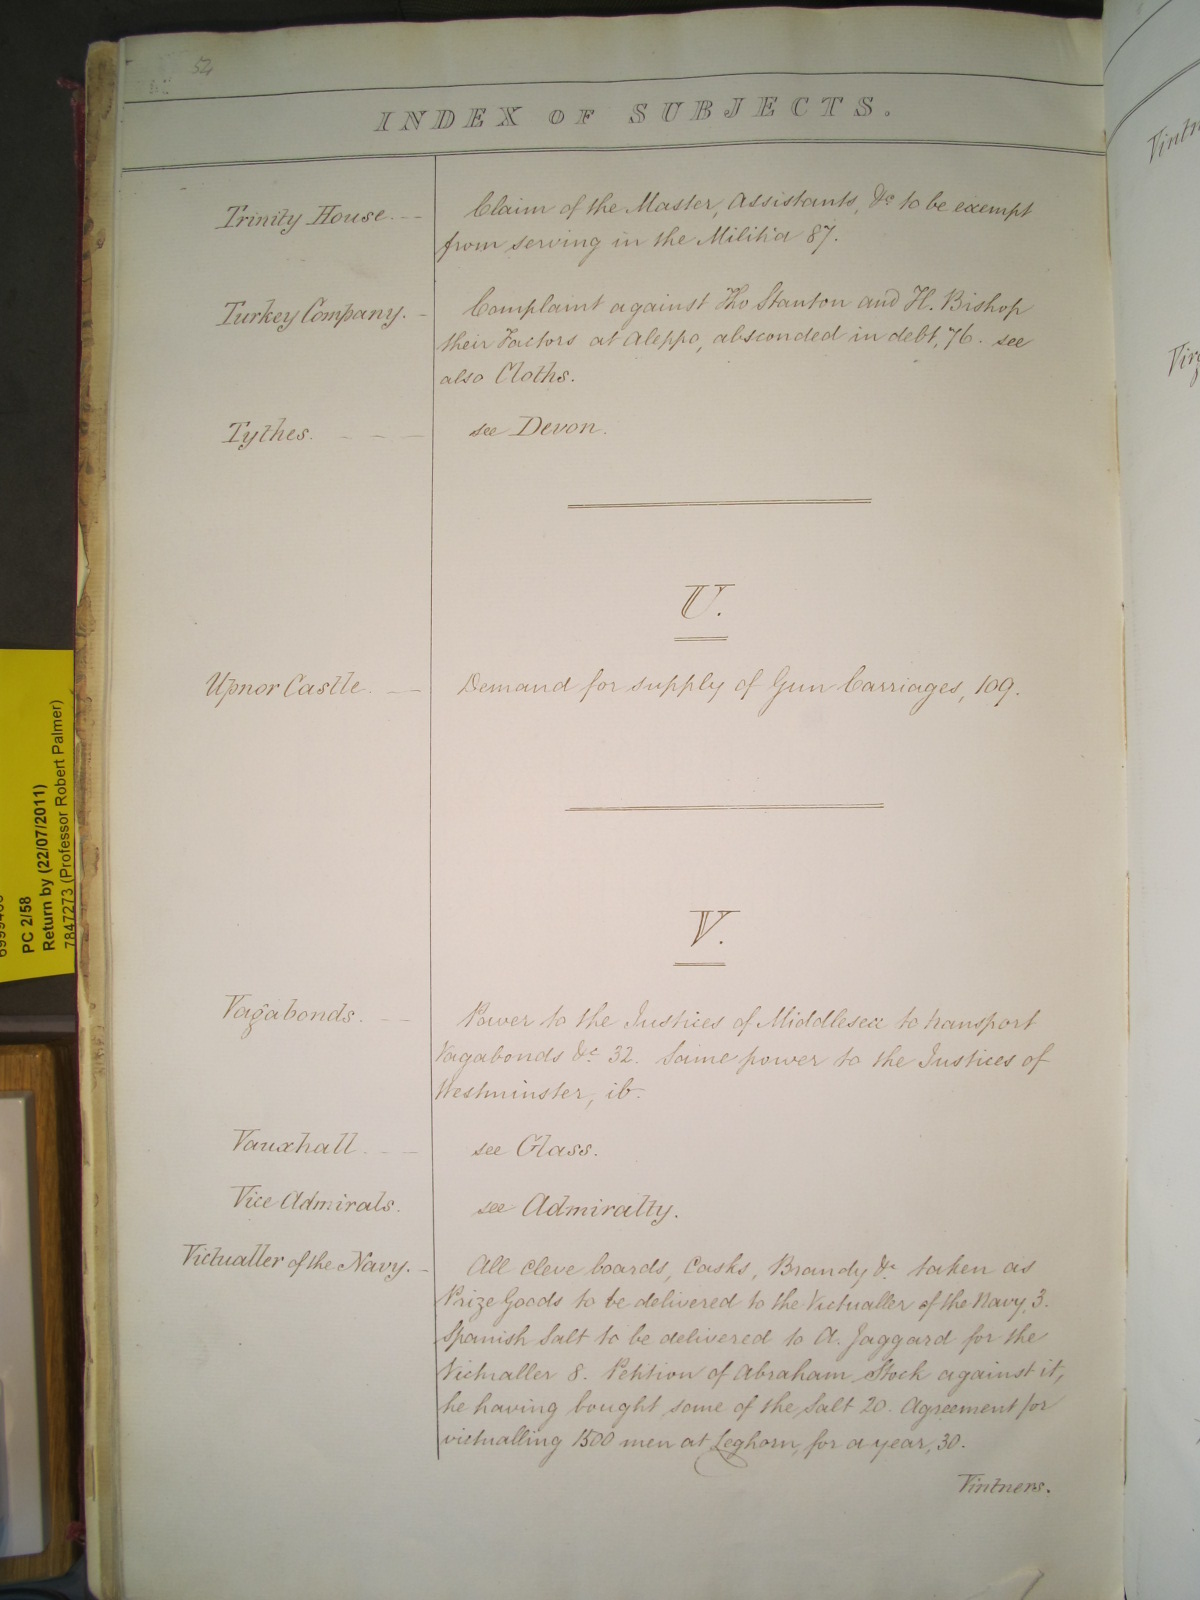 54
INDEX OF SUBJECTS.
Trinity House. -- Claim of the Master, Assistants, &c to be exempt
from serving in the Militia 87.
Turkey Company. - Complaint against Tho Stanton and H. Bishop
their Factors at Aleppo, absconded in debt, 76. see
also Cloths.
Tythes. - - - see Devon.
U.
Upnor Castle. - Demand for supply of Gun Carriages, 109.
V.
Vagabonds. - Power to the Justices of Middlesex to transport
Vagabonds &c 32. Same power to the Justices of
Westminster, ib.
Vauxhall. - - see Glass.
Vice Admirals. see Admiralty.
Victualler of the Navy. - All cleve boards, Casks, Brandy &c taken as
Prize Goods to be delivered to the Victualler of the Navy, 3.
Spanish Salt to be delivered to A. Jaggard for the
Victualler 8. Petition of Abraham Stock against it,
he having bought some of the Salt 20. Agreement for
victualling 1500 men at Leghorn, for a year, 30.
Vintners.
PC 2/58
Return by (22/07/2011)
7847273 (Professor Robert Palmer)